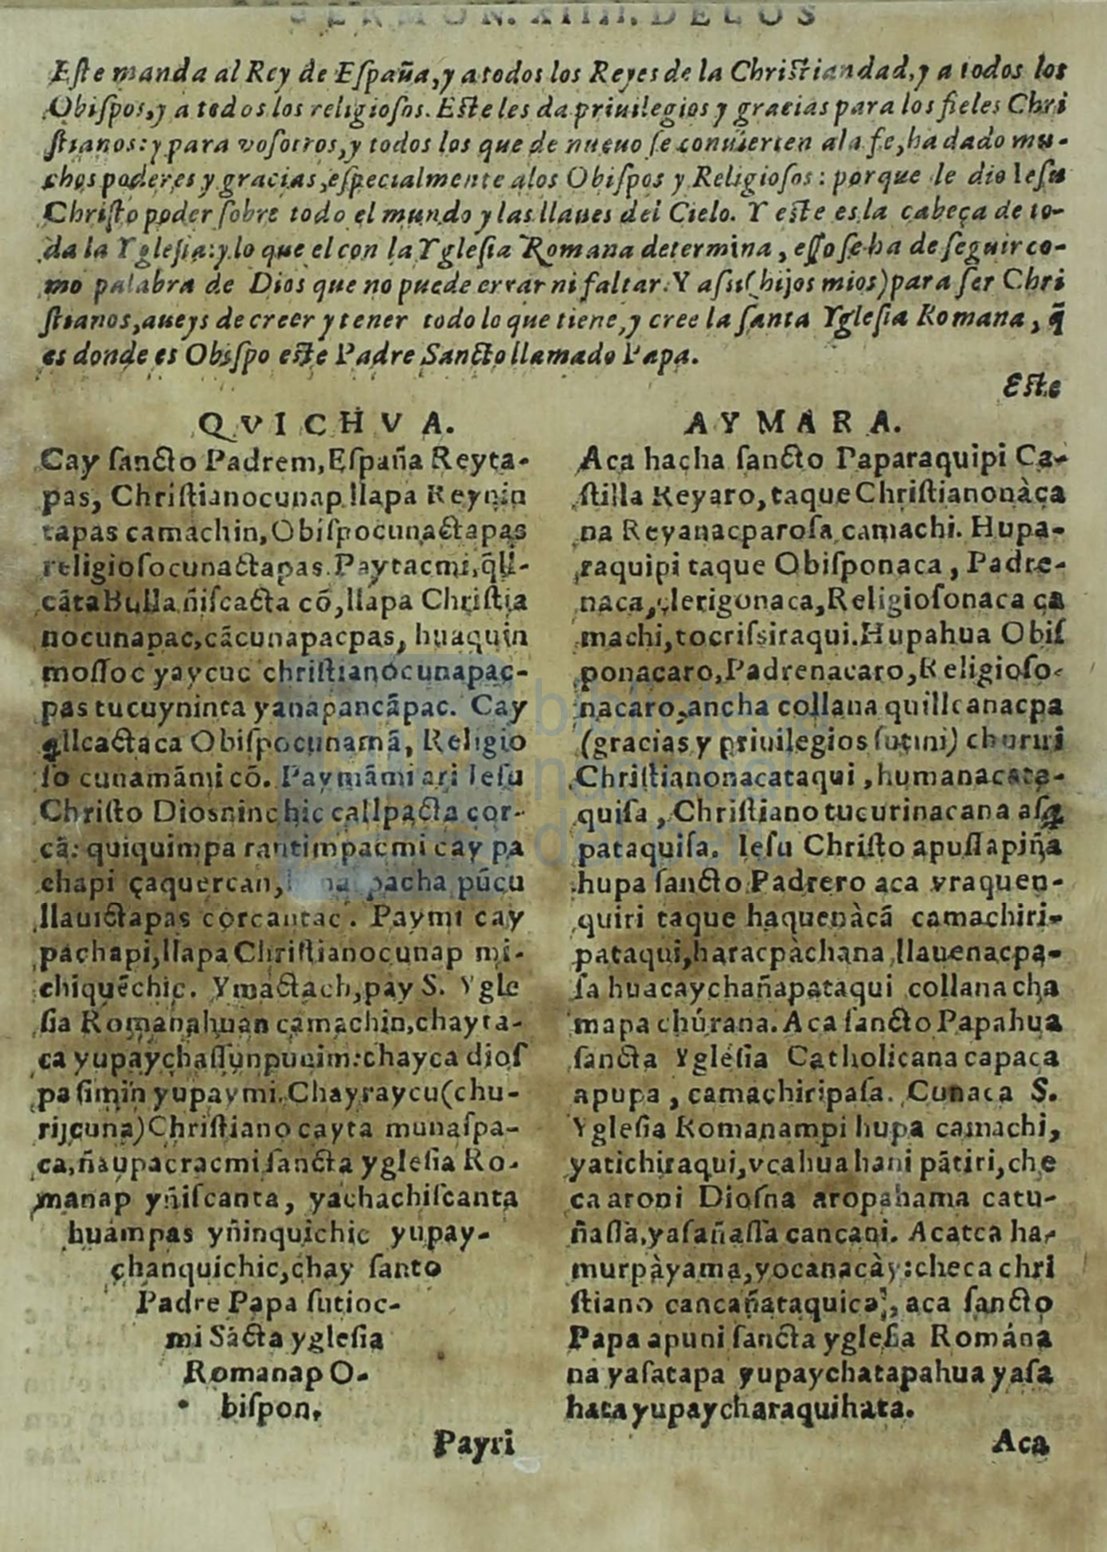 SERMON. XIIII. DE LOS
Eſte manda al Rey de Eſpaña, y a todos los Reyes de la Chriſtiandad, y a todos los
Obiſpos, y a todos los religioſos. Eſte les da priuilegios y gracias para los fieles Chri
ſtianos: y para voſotros, y todos los que de nueuo ſe conuierten ala fe, ha dado mu-
chos poderes y gracias, eſpecialmente alos Obiſpos y Religioſos: porque le dio Ieſu
Chriſto poder ſobre todo el mundo y las llaues del Cielo. Y eſte es la cabeça de to-
da la Ygleſia: y lo que el con la Ygleſia Romana determina, eſſo ſe ha de ſeguir co-
mo palabra de Dios que no puede errar ni faltar. Y aſsi (hijos mios) para ſer Chri
ſtianos, aueys de creer y tener todo lo que tiene, y cree la ſanta Ygleſia Romana, q̃
es donde es Obiſpo eſte Padre Sancto llamado Papa.
Eſte
QVICHVA.
Cay ſancto Padrem, Eſpaña Reyta-
pas, Chriſtianocunap llapa Reynin
tapas camachin, Obiſpocunactapas
religioſocunactapas. Paytacmi, q̃lli-
cãta Bulla ñiſcacta cõ, llapa Chriſtia
nocunapac, cãcunapacpas, huaquin
moſſoc yaycuc chriſtianócunapac-
pas tucuyninta yanapancãpac. Cay
q̃llcactaca Obiſpocunamã, Religio
ſo cunamãmi cõ. Paymãmi ari Ieſu
Chriſto Diosninchic callpacta cor-
cã: quiquimpa rantimpacmi cay pa
chapi çaquercan, pacha pũcu
llauictapas corcantac. Paymi cay
pachapi, llapa Chriſtianocunap mi-
chiquẽchic. Ymactach, pay S. Ygle
ſia Romanahuan camachin, chayta-
ca yupaychaſſunpunim: chayca dioſ
pa ſimin yupaymi. Chayraycu (chu-
rijcuna) Chriſtiano cayta munaſpa-
ca, ñaupacracmi ſancta ygleſia Ro-
manap yñiſcanta, yachachiſcanta
huampas yñinquichic yupay-
chanquichic, chay ſanto
Padre Papa ſutioc-
mi Sácta ygleſia
Romanap O-
biſpon.
Payri
AYMARA.
Aca hacha ſancto Paparaquipi Ca-
ſtilla Reyaro, taque Chriſtianonàca
na Reyanacparoſa camachi. Hupa-
raquipi taque Obiſponaca, Padre-
naca, clerigonaca, Religioſonaca ca
machi, tocriſsiraqui. Hupahua Obiſ
ponacaro, Padrenacaro, Religioſo-
nacaro, ancha collana quillcanacpa
(gracias y priuilegios ſutini) churui
Chriſtianonacataqui, humanacata-
quiſa, Chriſtiano tucurinacana aſq̃
pataquiſa. Ieſu Chriſto apuſſapiña
hupa ſancto Padrero aca vraquen-
quiri taque haquenàcã camachiri-
pataqui, haracpàchana llauenacpa-
ſa huacaychañapataqui collana cha
mapa chúrana. Aca ſancto Papahua
ſancta Ygléſia Catholicana capaca
apupa, camachiripaſa. Cunaca S.
Ygleſia Romanampi hupa camachi,
yatichiraqui, vcahua hani pãtiri, che
ca aroni Dioſna aropahama catu-
ñaſſa, yaſañaſſa cancani. Acatca ha-
murpàyama, yocanacày: checa chri
ſtiano cancañataquica, aca ſancto
Papa apuni ſancta ygleſia Románа
na yaſatapa yupaychatapahua yaſa
hata yupaycharaquihata.
Aca